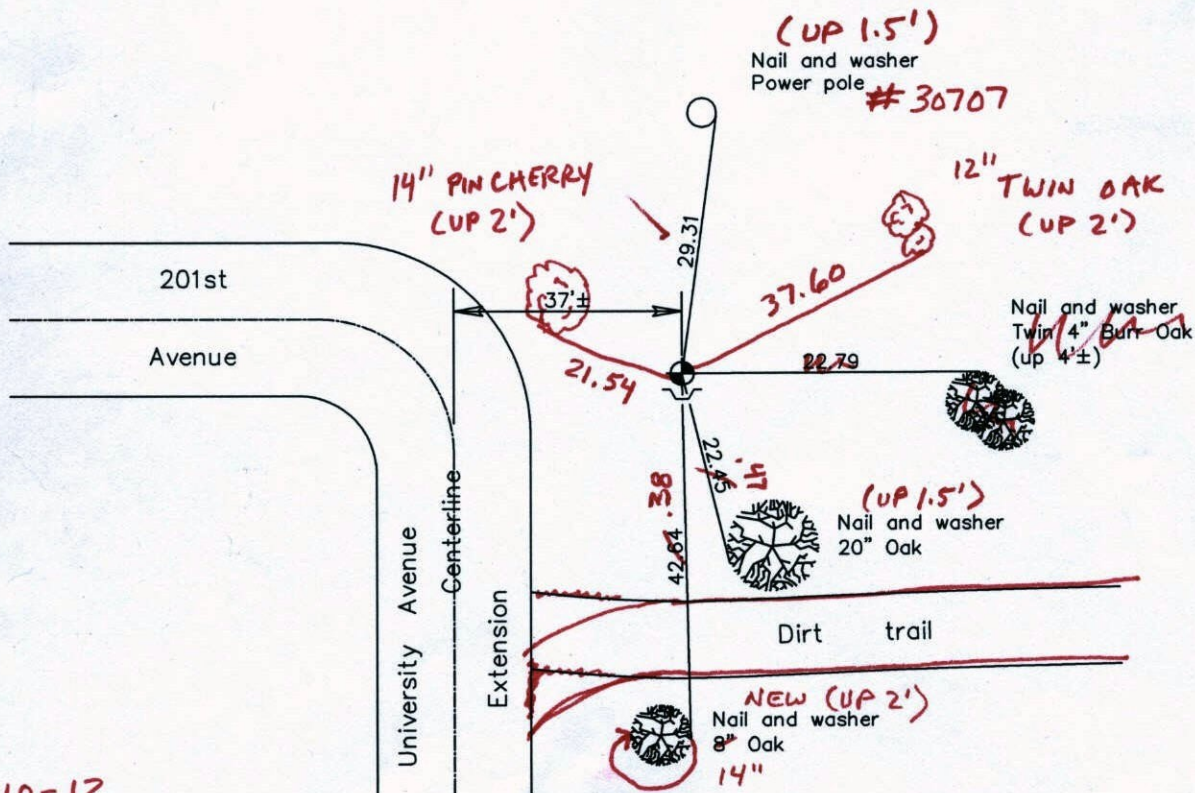 (UP 1.5')
Nail and washer
Power pole # 30707
14" PIN CHERRY
(UP 2')
12" TWIN OAK
(UP 2')
29.31
201st
Avenue
37'±
37.60
21.54
22.79
Nail and washer
Twin 4" Burr Oak
(up 4'±)
22.45
.47
42.64
.38
(UP 1.5')
Nail and washer
20" Oak
University Avenue
Centerline
Extension
Dirt trail
NEW (UP 2')
Nail and washer
8" Oak
14"